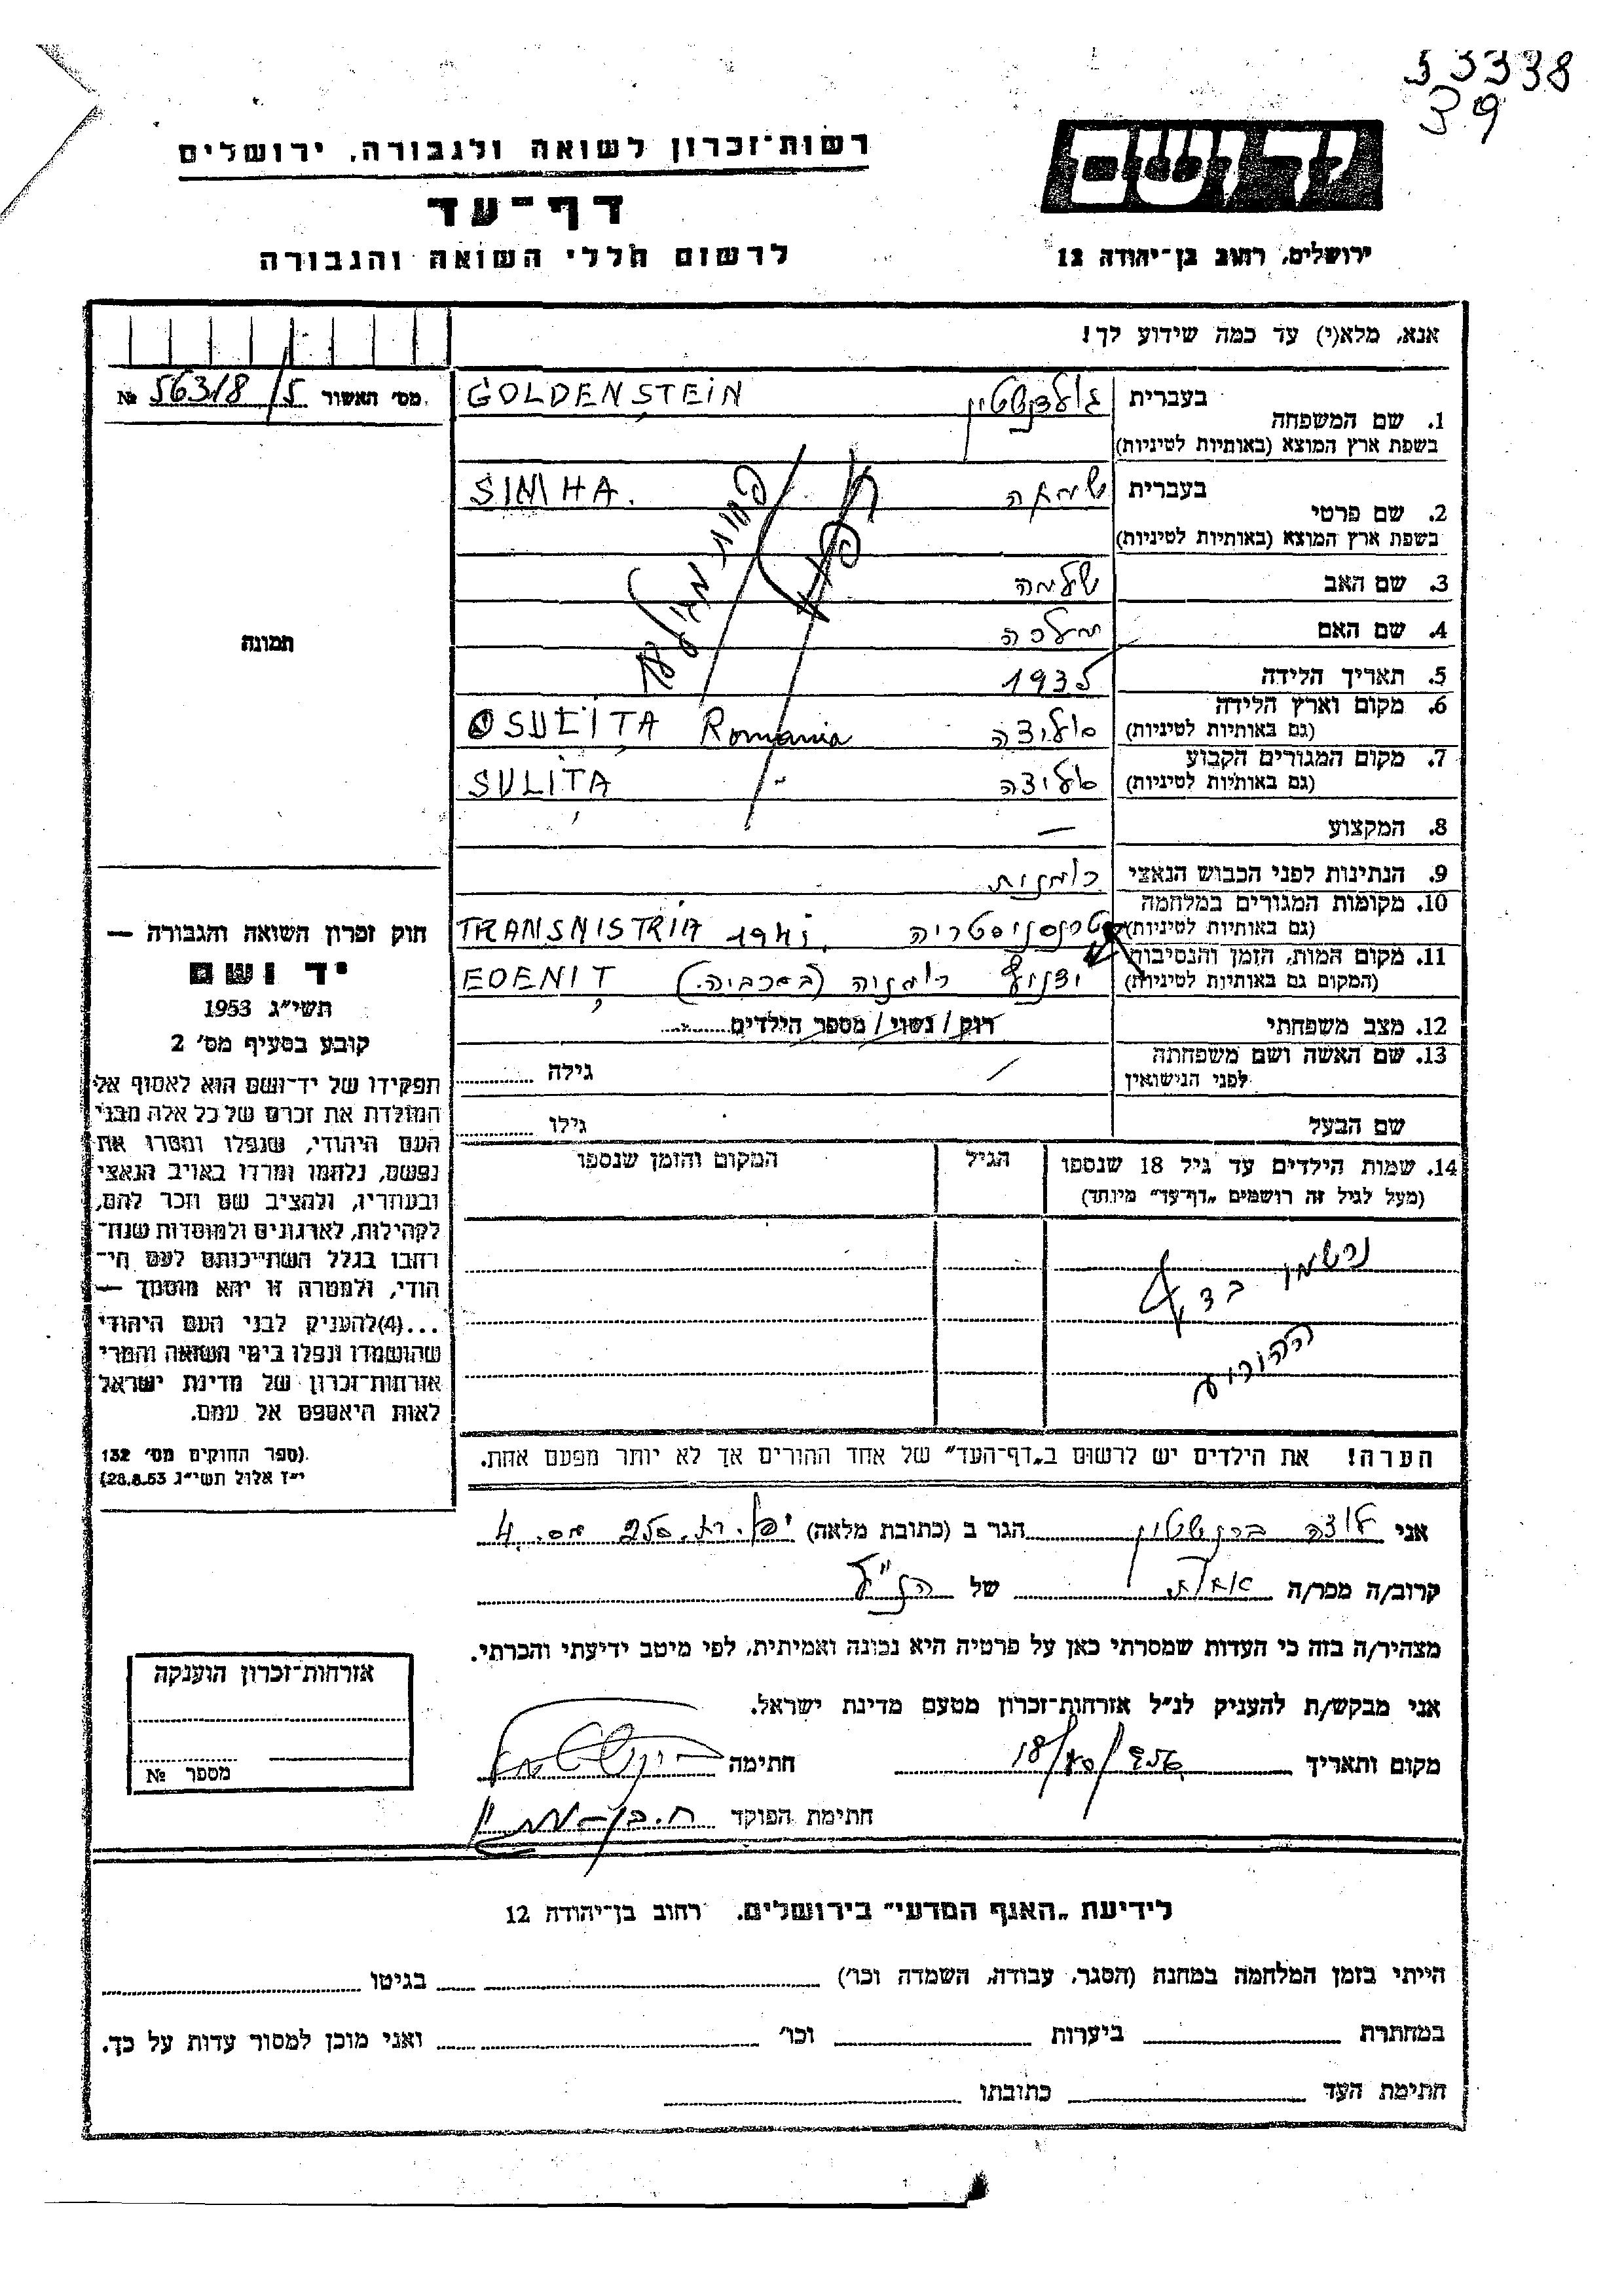 53338
39
יד ושם
רשות־זכרון לשואה ולגבורה, ירושלים
דף־עד
ירושלים, רחוב בן־יהודה 12
לרשום חללי השואה והגבורה
אנא, מלא(י) עד כמה שידוע לך!
מס' האשור 5/56318 №
1. שם המשפחה בעברית גולדנשטיין GOLDENSTEIN
בשפת ארץ המוצא (באותיות לטיניות)
2. שם פרטי בעברית שמחה SIMHA.
בשפת ארץ המוצא (באותיות לטיניות)
3. שם האב שלמה
4. שם האם מלכה
5. תאריך הלידה 1935
6. מקום וארץ הלידה סוליצה SULIȚA Romania
(גם באותיות לטיניות)
7. מקום המגורים הקבוע סוליצה SULIȚA "
(גם באותיות לטיניות)
8. המקצוע —
9. הנתינות לפני הכבוש הנאצי רומנית
10. מקומות המגורים במלחמה טרנסניסטריה TRANSNISTRIA 1941
(גם באותיות לטיניות)
11. מקום המות, הזמן והנסיבות רומניה (בסרביה) EDENIȚ
(המקום גם באותיות לטיניות)
12. מצב משפחתי רוק/נשוי/מספר הילדים
13. שם האשה ושם משפחתה גילה
לפני הנישואין
שם הבעל גילו
14. שמות הילדים עד גיל 18 שנספו הגיל המקום והזמן שנספו
(מעל לגיל זה רושמים „דף־עד" מיוחד)
נרשמו בדף
ההורים
הערה! את הילדים יש לרשום ב„דף־העד" של אחד ההורים אך לא יותר מפעם אחת.
תמונה
חוק זכרון השואה והגבורה —
יד ושם
תשי"ג 1953
קובע בסעיף מס' 2
תפקידו של יד־ושם הוא לאסוף אל
המולדת את זכרם של כל אלה מבני
העם היהודי, שנפלו ומסרו את
נפשם, נלחמו ומרדו באויב הנאצי
ובעוזריו, ולהציב שם וזכר להם,
לקהילות, לארגונים ולמוסדות שנח־
רבו בגלל השתייכותם לעם הי־
הודי, ולמטרה זו יהא מוסמך —
...(4) להעניק לבני העם היהודי
שהושמדו ונפלו בימי השואה והמרי
אזרחות־זכרון של מדינת ישראל
לאות היאספם אל עמם.
(ספר החוקים מס' 132
י"ז אלול תשי"ג 28.8.53)
אני הגר ב (כתובת מלאה)
קרוב/ה מכר/ה אחות של הנ"ל
מצהיר/ה בזה כי העדות שמסרתי כאן על פרטיה היא נכונה ואמיתית, לפי מיטב ידיעתי והכרתי.
אני מבקש/ת להעניק לנ"ל אזרחות־זכרון מטעם מדינת ישראל.
מקום ותאריך חתימה
חתימת הפוקד
אזרחות־זכרון הוענקה
מספר №
לידיעת „האגף המדעי" בירושלים. רחוב בן־יהודה 12
הייתי בזמן המלחמה במחנה (הסגר, עבודה, השמדה וכו') בגיטו
במחתרת ביערות וכו' ואני מוכן למסור עדות על כך.
חתימת העד כתובתו